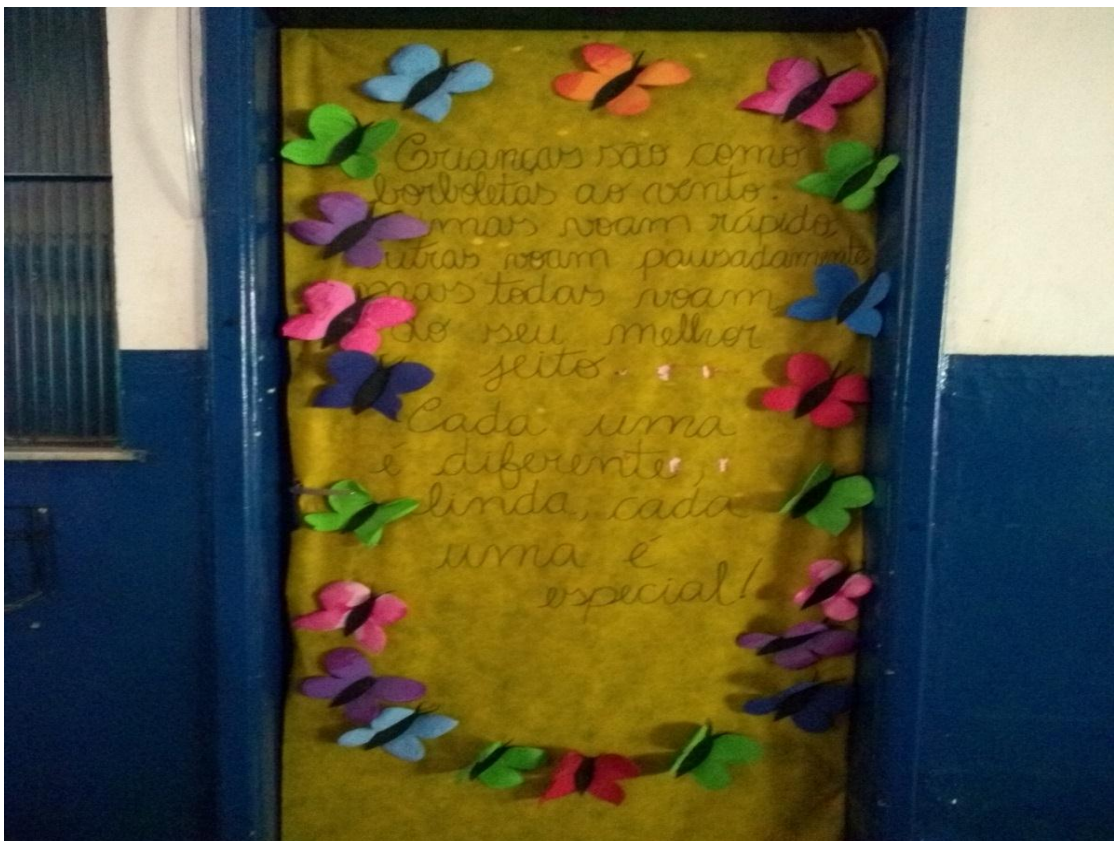 Crianças são como
borboletas ao vento:
umas voam rápido,
outras voam pausadamente,
mas todas voam
do seu melhor
jeito...
Cada uma
é diferente,
linda, cada
uma é
especial!